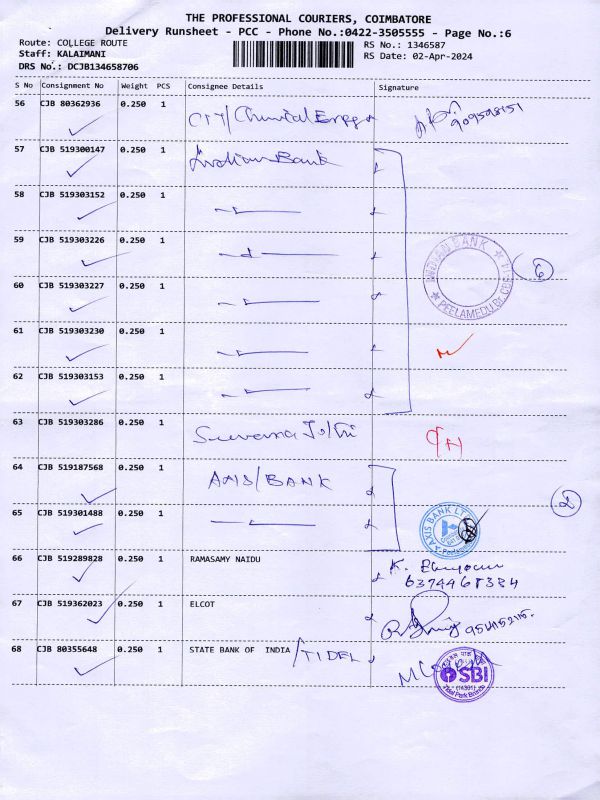 THE PROFESSIONAL COURIERS, COIMBATORE
Delivery Runsheet - PCC - Phone No.:0422-3505555 - Page No.:6
Route: COLLEGE ROUTE
RS No.: 1346587
Staff: KALAIMANI
RS Date: 02-Apr-2024
DRS No.: DCJB134658706
S No Consignment No Weight PCS Consignee Details Signature
56 CJB 80362936 0.250 1 CIT/Chemical Engg
57 CJB 519300147 0.250 1 Indian Bank
58 CJB 519303152 0.250 1
59 CJB 519303226 0.250 1
INDIAN BANK
PEELAMEDU Br. CBE
6
60 CJB 519303227 0.250 1
61 CJB 519303230 0.250 1
62 CJB 519303153 0.250 1
63 CJB 519303286 0.250 1
64 CJB 519187568 0.250 1 AXIS/BANK
2
65 CJB 519301488 0.250 1
AXIS BANK LTD
66 CJB 519289828 0.250 1 RAMASAMY NAIDU K.
67 CJB 519362023 0.250 1 ELCOT
68 CJB 80355648 0.250 1 STATE BANK OF INDIA /TIDEL
SBI
Tidel Park Branch